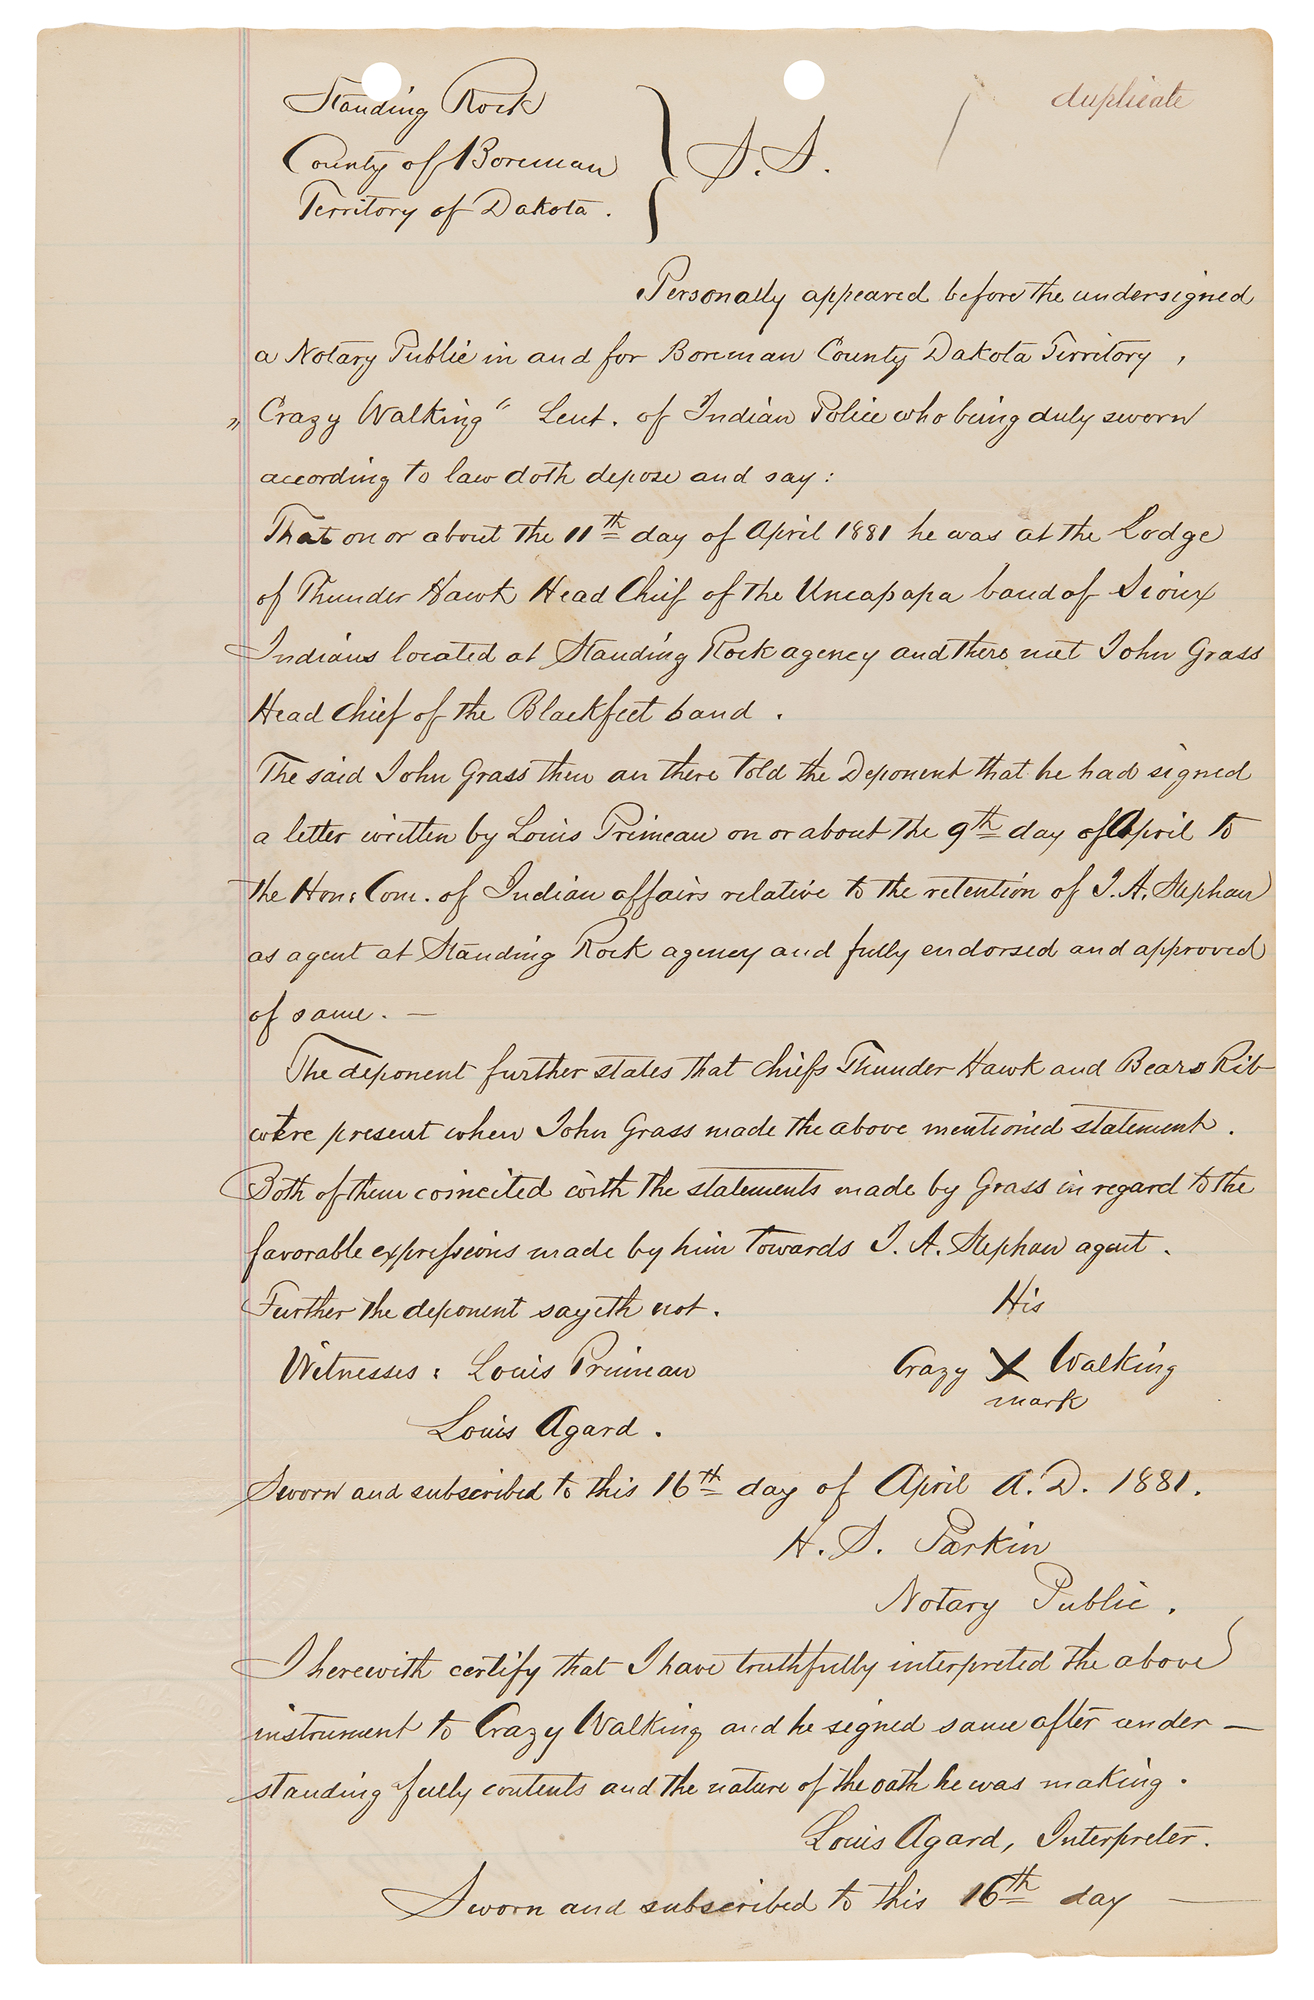 duplicate
Standing Rock
County of Boreman } S.S.
Territory of Dakota.
Personally appeared before the undersigned
a Notary Public in and for Boreman County Dakota Territory,
„Crazy Walking“ Leut. of Indian Police who being duly sworn
according to law doth depose and say:
That on or about the 11th day of April 1881 he was at the Lodge
of Thunder Hawk Head Chief of the Uncapapa band of Sioux
Indians located at Standing Rock agency and there met John Grass
Head Chief of the Blackfeet band.
The said John Grass then an there told the Deponent that he had signed
a letter written by Louis Primeau on or about the 9th day of April to
the Hon: Com. of Indian affairs relative to the retention of J. A. Stephan
as agent at Standing Rock agency and fully endorsed and approved
of same. —
The deponent further states that chiefs Thunder Hawk and Bears Rib
were present when John Grass made the above mentioned statement.
Both of them coincited with the statements made by Grass in regard to the
favorable expressions made by him towards J. A. Stephan agent.
Further the deponent sayeth not. His
Witnesses: Louis Primeau Crazy X Walking
mark
Louis Agard.
Sworn and subscribed to this 16th day of April A.D. 1881.
H. S. Parkin
Notary Public.
I herewith certify that I have truthfully interpreted the above
instrument to Crazy Walking and he signed same after under—
standing fully contents and the nature of the oath he was making.
Louis Agard, Interpreter.
Sworn and subscribed to this 16th day —